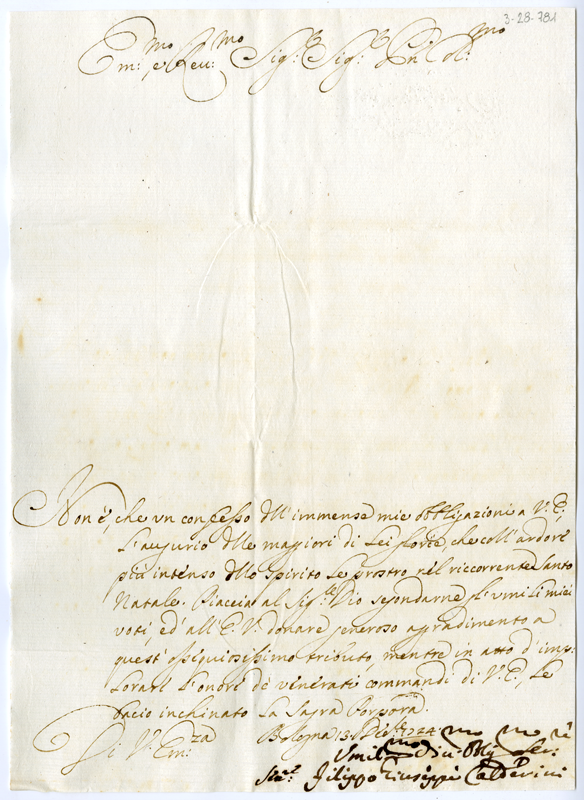 3-28-781
Em:mo e Reu:mo Sig:r Sig:r Pn Col:mo
Non è, che vn confesso dll' immense mie obbligazioni a V: E:
l'augurio dlle maggiori di Lei glorie, che coll' ardore
più intenso dllo spirito Le prostro nel ricorrente Santo
Natale. Piaccia al Sig:re Dio secondarne gl' umili miei
voti, ed' all' E: V: donare generoso agradimento a
quest' ossequiosissimo tributo, mentre in atto d' imp:
lorare l' onore de venerati commandi di V: E:, Le
bacio inchinato La Sagra Porpora.
Di V: Em:za Bologna 13: 1724
Umil:mo Di:mo Obbl:mo Ser:re
Filippo Giuseppe Calderini